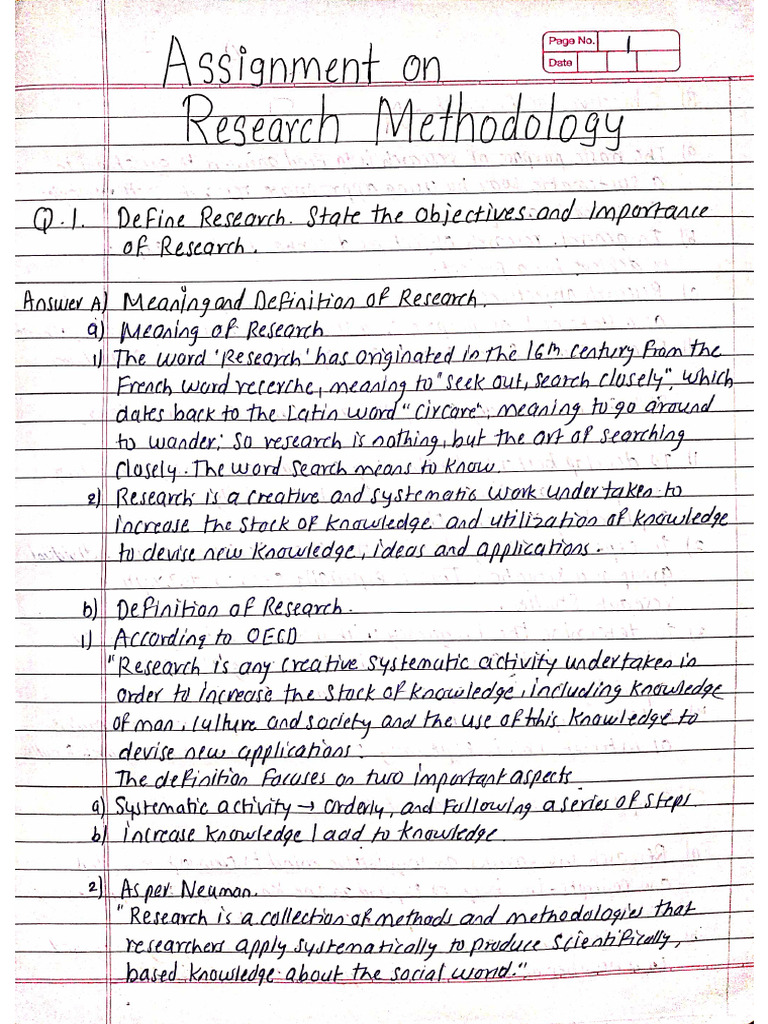 Page No. 1
Date
Assignment on
Research Methodology
Q.1. Define Research. State the objectives and importance
of Research.
Answer A) Meaning and Definition of Research.
a) Meaning of Research
1) The word 'Research' has originated in the 16th century from the
French word recerche, meaning to "seek out, search closely", which
dates back to the Latin word "circare", meaning to go around
to wander; so research is nothing, but the art of searching
closely. The word search means to know.
2) Research is a creative and systematic work undertaken to
increase the stock of knowledge and utilization of knowledge
to devise new knowledge, ideas and applications.
b) Definition of Research.
1) According to OECD
"Research is any creative systematic activity undertaken in
order to increase the stock of knowledge, including knowledge
of man, culture and society and the use of this knowledge to
devise new applications.
The definition focuses on two important aspects.
a) Systematic activity → Orderly, and following a series of steps
b) increase knowledge / add to knowledge.
2) As per Neuman.
"Research is a collection of methods and methodologies that
researchers apply systematically to produce scientifically,
based knowledge about the social world."